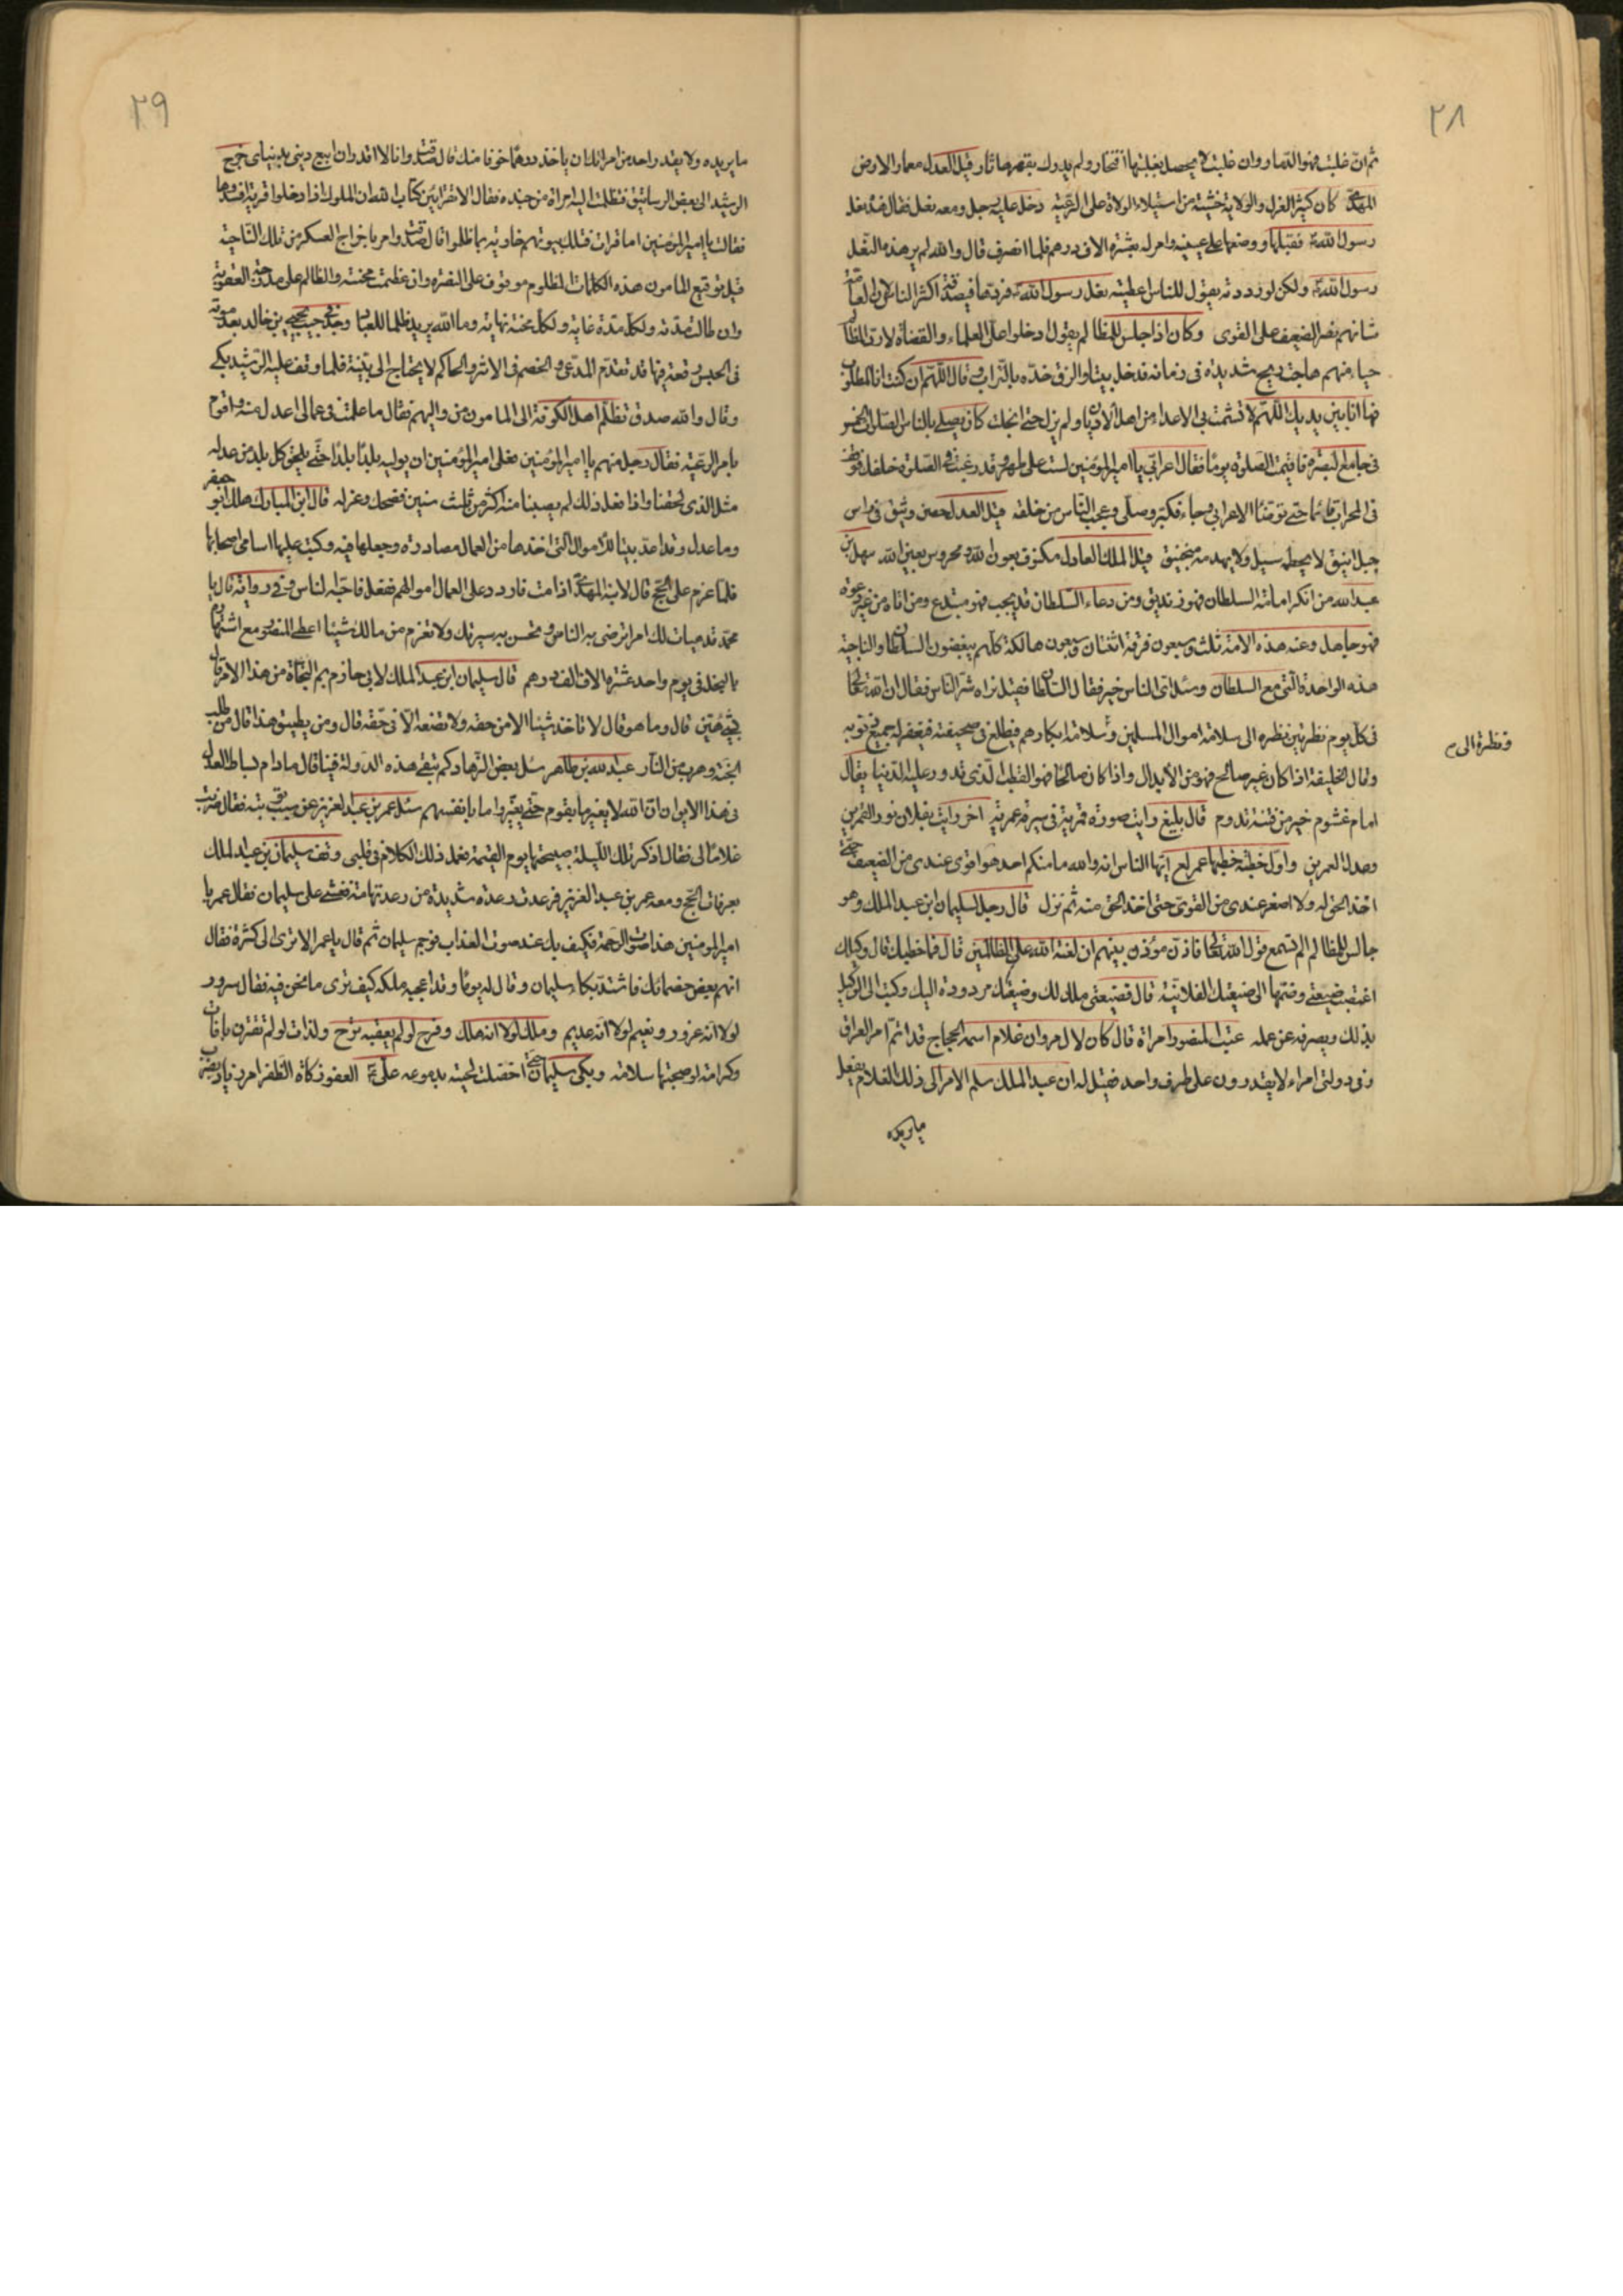 ٢٨
ثم ان غلبت فهو الدمار وان غلبت لم يحصل بغلبتها افتخار ولم يدرك بقهرها ثار قيل العدل معمار الارض
المهدى كان كثير العزل والولاية خشية من استيلاء الولاة على الرعية دخل عليه رجل ومعه نعل فقال هذه نعل
رسول الله فقبلها ووضعها على عينيه وامر له بعشرة الاف درهم فلما انصرف قال والله لم ير هذه النعل
رسول الله ولكن لو رددته يقول للناس اعطيته نعل رسول الله فردها فيصدقه اكثر الناس لان العامة
شانهم نصر الضعيف على القوى وكان اذا جلس للمظالم يقول ادخلوا على العلماء والقضاة لارد المظالم
حياء منهم هاجت ريح شديدة فى زمانه فدخل بيتا والزق خده بالتراب وقال اللهم ان كنت انا المطلوب
فها انا بين يديك اللهم لا تشمت بى الاعداء من اهل الاديان ولم يزل حتى انجلت كان يصلى بالناس الصلوات الخمس
فى جامع البصرة فاقيمت الصلوة يوما فقال اعرابى يا امير المؤمنين لست على طهر وقد رغبت فى الصلوة خلفك فوقف
فى المحراب قائما حتى توضا الاعرابى وجاء فكبر وصلى وعجب الناس من خلقه قيل العدل حصن وثيق فى راس
جبل انيق لا يحطمه سيل ولا يهدمه منجنيق قيل الملك العادل مكنوف بعون الله ومحروس بعين الله سهل بن
عبد الله من انكر امامة السلطان فهو زنديق ومن دعاه السلطان فلم يجب فهو مبتدع ومن اتاه من غير دعوة
فهو جاهل وعنه هذه الامة ثلث وسبعون فرقة اثنتان وسبعون هالكة كلهم يبغضون السلطان والناجية
هذه الواحدة التى مع السلطان وسئل اى الناس خير فقال السلطان فقيل نراه شر الناس فقال ان لله تعالى
فى كل يوم نظرتين نظره الى سلامة اموال المسلمين وسلامة ابكارهم فيطلع فى صحيفته فيغفر له جميع ذنوبه
ونظرة الى
وقال الخليفة اذا كان غير صالح فهو من الابدال واذا كان صالحا فهو القطب الذى تدور عليه الدنيا يقال
امام غشوم خير من فتنة تدوم قال بليغ رايت صورة قمرية فى سيرة عمرية اخر رايت بفلان نور القمرين
وعدل العمرين واول خطبة خطبها عمر ايها الناس انه والله ما منكم احد هو اقوى عندى من الضعيف حتى
اخذ الحق له ولا اصغر عندى من القوى حتى اخذ الحق منه ثم نزل قال رجل لسليمان ابن عبد الملك وهو
جالس للمظالم الم تسمع قول الله تعالى فاذن مؤذن بينهم ان لعنة الله على الظالمين قال فما خطبك قال وكيلك
اغتصب ضيعتى وضمها الى ضيعتك الفلانية قال فضيعتى ملك لك وضيعتك مردودة اليك وكتب الى الوكيل
بذلك وبصرفه عن عمله عتب المنصور امراة قال كان لال مروان غلام اسمه الحجاج قد اتم امر العراق
وفى دولتى امراء لا يقدرون على طرف واحد فقيل له ان عبد الملك سلم الامر الى ذلك الغلام يفعل
ما يريده
٢٩
ما يريده ولا يقدر واحد من امرائك ان ياخذ درهما خوفا منك قال صدقت وانا لا اقدر ان ابيع دينى بدنياى خرج
الرشيد الى بعض الرساتيق فتظلمت اليه امراة من جنده فقال الا تقرايين كتاب الله ان الملوك اذا دخلوا قرية افسدوها
فقالت يا امير المؤمنين اما قرات فتلك بيوتهم خاوية بما ظلموا قال صدقت وامر باخراج العسكر من تلك الناحية
قيل توقيع المامون هذه الكلمات المظلوم موقوف على النصرة وان عظمت محنته والظالم على مدرجة العقوبة
وان طالت مدته ولكل مدة غاية ولكل محنة نهاية وما الله يريد ظلما للعباد وجد فى جيب يحيى بن خالد بعد موته
فى الحبس رقعة فيها قد تقدم المدعى والخصم فى الاثر والحاكم لا يحتاج الى بينة فلما وقف عليه الرشيد بكى
وقال والله صدق تظلم اهل الكوفة الى المامون من واليهم فقال ما علمت فى عمالى اعدل منه واقوم
بامر الرعية فقال رجل منهم يا امير المؤمنين فعلى امير المؤمنين ان يوليه بلدا بلدا حتى يلحق كل بلد من عدله
مثل الذى لحقنا واذا فعل ذلك لم يصبنا منه اكثر من ثلث سنين فضحك وعزله قال ابن المبارك هلك ابو جعفر
وما عدل وقد اعد بيتا للاموال التى اخذها من العمال مصادرة وجعلها فيه وكتب عليها اسامى اصحابها
فلما عزم على الحج قال لابنه المهدى اذا مت فاردد على العمال اموالهم ففعل فاحبه الناس وفى رواية قال يا
محمد قد هيات لك امرا ترضى به الناس وتحسن به سيرتك ولا تغرم من مالك شيئا اعطى المنصور مع اشتهاره
بالبخل فى يوم واحد عشرة الاف الف درهم قال سليمان ابن عبد الملك لابى حازم بم النجاة من هذا الامر قال
بشئ هين قال وما هو قال لا تاخذ شيئا الا من حقه ولا تضعه الا فى حقه قال ومن يطيق هذا قال من طلب
الجنة وهرب من النار عبد الله بن طاهر سئل بعض الزهاد كم تبقى هذه الدولة فينا قال ما دام بساط العدل
فى هذا الايوان ان الله لا يغير ما بقوم حتى يغيروا ما بانفسهم سئل عمر بن عبد العزيز عن سبب توبته فقال ضربت
غلاما لى فقال اذكر تلك الليلة صبيحتها يوم القيمة فعمل ذلك الكلام فى قلبى وقف سليمان بن عبد الملك
بعرفات الحج ومعه عمر بن عبد العزيز فرعدت رعدة شديدة من رعد تهامة فغشى على سليمان فقال عمر يا
امير المؤمنين هذا صوت الرحمة فكيف بك عند صوت العذاب فوجم سليمان ثم قال يا عمر الا ترى الى كثرة فقال
انهم بعض خصمائك فاشتد بكاء سليمان وقال له يوما وقد اعجبه ملكه كيف ترى ما نحن فيه فقال سرور
لولا انه غرور ونعيم لولا انه عديم وملك لولا انه هلك وفرح لو لم يعقبه ترح ولذات لو لم تقترن بافات
وكرامة لو صحبتها سلامة وبكى سليمان حتى اخضلت لحيته بدموعه على العفو زكاة الظفر امر زياد بضرب